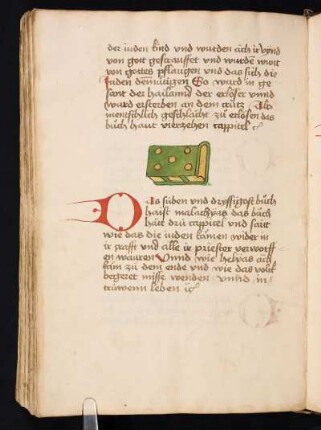 der iuden kind und wurden aich ir vynd
von gott gestrauffet und wurde wort
von gottes pflangen und das sich die
Juden demüttigen So wurd in ge
sant der hailannd der erlöser vnnd
wurd ersterben an dem crütz Als
mentschlich geschlächt zü erlösen das
büch haut vierzehen cappitel
Das süben und dryssigost büch
haist malachyas das büch
hält drü cappitel und sait
wie das die iuden kämen wider in
ir und alle ir priester verworff
en wauren Vnnd wie helyas äch
käm zü dem ende und wie das volk
bekeret müsse werden vnnd in
trüwenn leben